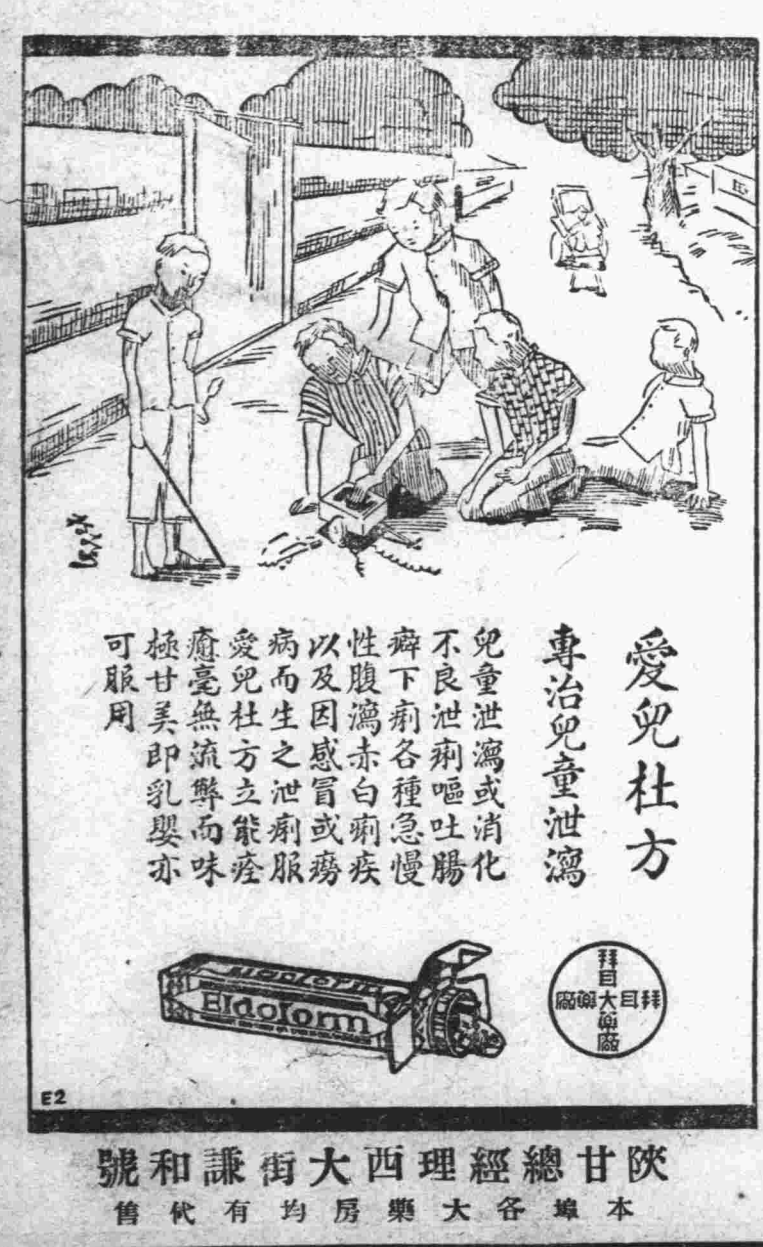 愛兒杜方
專治兒童泄瀉
兒童泄瀉或消化
不良泄痢嘔吐腸
癖下痢各種急慢
性腹瀉赤白痢疾
以及因感冒或癆
病而生之泄痢服
愛兒杜方立能痊
癒毫無流弊而味
極甘美即乳嬰亦
可服用
Eldoform
Eldoform
拜耳大藥廠
拜耳大藥廠
E2
陝甘總經理西大街謙和號
本埠各大藥房均有代售